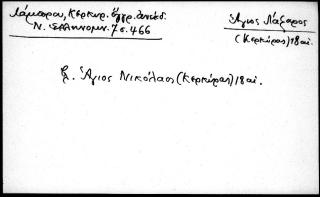 Λάμπρου, Κερκυρ. ἔγγρ. ἀνέκδ.
Ν. Ἑλληνομν. 7 σ. 466
Ἅγιος Λάζαρος
(Κερκύρας) 18 αἰ.
Ἅγιος Νικόλαος (Κερκύρας) 18 αἰ.